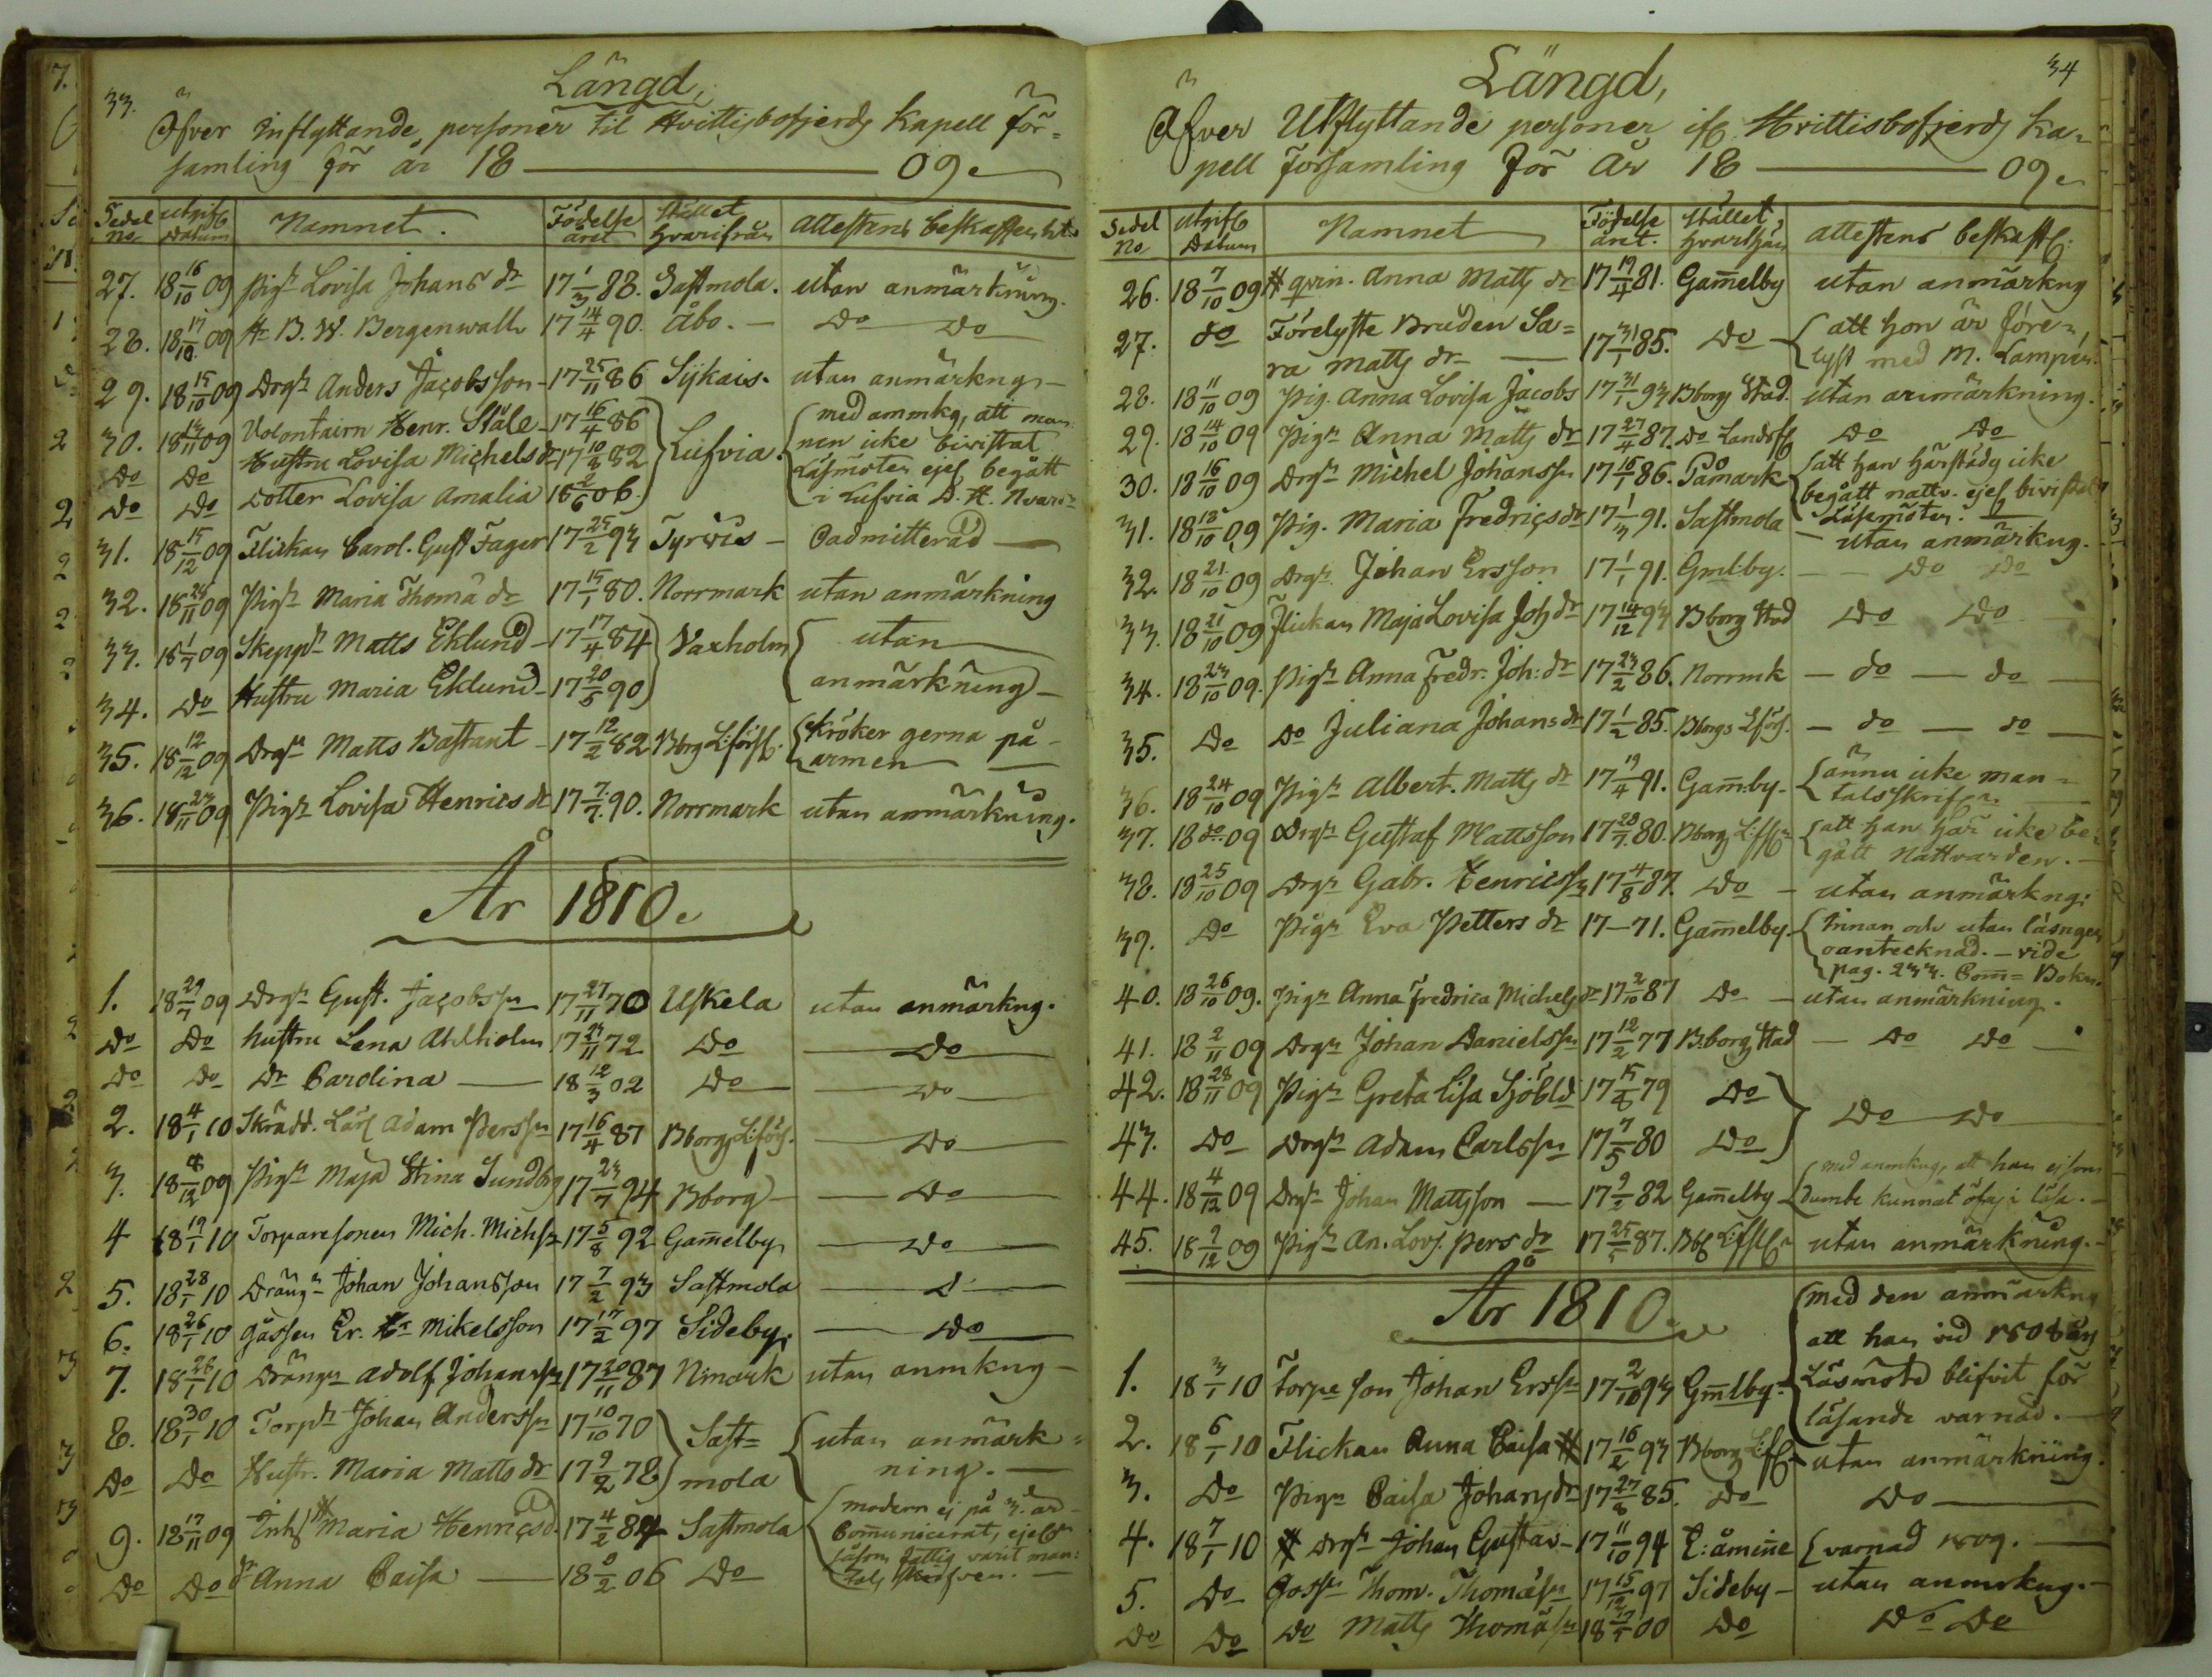 33.
Längd,
Öfver Inflyttande personer til Hvittisbofjerds Kapell för=
samling för år 18 — 09.
Sedel No utgifs Datum Namnet. Födelse året Stället hvarifrån attestens beskaffenhet
27. 18 16/10 09 Pign Lovisa Johans dr 17 1/3 88. Sastmola. utan anmärkning.
28. 18 17/10 09 Hr B. W. Bergenwall 17 14/4 90. Åbo. — Do Do
29. 18 15/10 09 Drgn Anders Jacobsson 17 25/11 86 Sijkais. utan anmärkng —
30. 18 13/11 09 Volontairn Henr. Ståle 17 16/4 86 Lufvia. med anmkg, att man=
Do Do Hustru Lovisa Michels dr 17 10/3 82 nen icke bivistat
Läsmöten ejel begått
Do Do Dotter Lovisa Amalia 18 2/6 06. i Lufvia D. H. Nvard
31. 18 15/12 09 Flickan Carol. Gust Fager 17 25/2 93 Tyrvis — Oadmitterad —
32. 18 28/11 09 Pign Maria Thomä dr 17 15/1 80. Norrmark utan anmärkning
33. 18 1/7 09 Skeppn Matts Eklund 17 17/4 84 Vaxholm utan
34. Do Hustru Maria Eklund 17 20/5 90 anmärkning —
35. 18 12/12 09 Drgn Matts Bastant 17 12/2 82 Bbrg L:förs. kröker gerna på
armen —
36. 18 23/11 09 Pign Lovisa Henrics dr 17 7/7 90. Norrmark utan anmärkning.
År 1810.
1. 18 29/7 09 Drgn Gust. Jacobssn 17 27/11 70 Uskela utan anmärkng.
Do Do hustru Lena Ahlholm 17 23/11 72 Do Do
Do Do Dr Carolina — 18 12/3 02 Do Do
2. 18 4/1 10 Skrädd. Lärl Adam Perssn 17 16/4 87 Bborg L:förs. Do
3. 18 8/12 09 Pign Maja Stina Sundbg 17 23/7 94 Bborg — Do
4 18 19/1 10 Torparesonen Mich. Michsn 17 5/8 92 Gam̅elby Do
5. 18 28/1 10 Drängn Johan Johansson 17 7/2 93 Sastmola
6. 18 26/1 10 gåssen Er. Mikelsson 17 17/2 97 Sideby. Do
7. 18 26/1 10 Drängn Adolf Johanssn 17 20/11 87 Nmark utan anmkng —
8. 18 30/1 10 Torpn Johan Anderssn 17 10/10 70 Sast= utan anmärk=
Do Do Hustr. Maria Matts dr 17 9/2 78 mola ning. —
9. 18 17/11 09 Inhs Maria Henricsd. 17 4/2 84 Sastmola modern ej på 3. år
Com̅unicerat, ejel
såsom fattig varit man:
Do Do dr Anna Caisa — 18 8/2 06 Do tals
34
Längd,
Öfver Utflyttande personer ifr. Hvittisbofjerds Ka=
pell Församling för År 18 — 09.
Sedel No utgifs Datum Namnet Födelse året. Stället, hvarthän attestens beskaff:
26. 18 7/10 09 qvin. Anna Matts dr 17 19/4 81. Gam̅elby utan anmärkng
27. do Förelyste Bruden Sa= 17 31/1 85. Do att hon är före=
ra Matts dr — lyst med M. Lampén.
28. 18 11/10 09 Pig. Anna Lovisa Jacobs 17 31/1 93 Bborg Stad. utan anmärkning.
29. 18 14/10 09 Pign Anna Matts dr 17 27/4 87. Do Landsf Do Do
30. 18 16/10 09 Drgn Michel Johanssn 17 15/1 86. Påmark att han härstädes icke
begått nattv. ejel bivistat
Läsemöten.
31. 18 18/10 09 Pig. Maria Fredricsdr 17 1/3 91. Sastmola — utan anmärkng.
32. 18 21/10 09 Drgn Johan Ersson 17 1/1 91. Gmlby. — Do Do
33. 18 21/10 09 Flickan Maja Lovisa Joh dr 17 14/12 93 Bborg Stad Do Do
34. 18 23/10 09. Pign Anna Fredr. Joh: dr 17 23/2 86. Norrmk — do — do —
35. Do Do Juliana Johans dr 17 1/2 85. Bborgs L förs. — do — do —
36. 18 24/10 09 Pign Albert. Matts dr 17 19/4 91. Gam̅by — ännu icke man=
talsskrifn.
37. 18 do 09 Drgn Gustaf Mattsson 17 28/7 80. Bborg L:fs att han här icke be=
gått Nattvarden. —
38. 18 25/10 09 Drgn Gabr. Henricsn 17 4/8 87. Do — utan anmärkng:
39. Do Pign Eva Petters dr 17—71. Gam̅elby. innan och utan läsngen
oantecknad. — vide
pag. 233. Com̅= Boken
40. 18 26/10 09. Pign Anna Fredrica Michels dr 17 2/10 87 Do — utan anmärkning.
41. 18 2/11 09 Drgn Johan Danielssn 17 12/2 77 Bborg Stad — Do Do —
42. 18 28/11 09 Pign Greta Lisa Sjöbld 17 15/8 79 Do Do Do
43. Do Drgn Adam Carlssn 17 7/5 80 Do
44. 18 4/12 09 Drgn Johan Mattsson — 17 9/2 82 Gam̅elby med anmkng, att han ej som
dumbe kunnat öfvas i läsn. —
45. 18 9/12 09 Pign An. Lovs. Pers dr 17 25/5 87. utan anmärkning. —
År 1810.
1. 18 3/1 10 Torpe son Johan Erssn 17 2/10 93 Gm̅lby — med den anmärkng
att han vid 1808 års
Läsmöte blifvit för
läsande varnad. —
2. 18 6/1 10 Flickan Anna Caisa 17 16/2 93 Bborg L:fs utan anmärkning.
3. Do Pign Caisa Johans dr 17 27/8 85. Do Do
4. 18 7/1 10 Drgn Johan Gustav — 17 11/10 94 E:åmine varnad 1809. —
5. Do Gossn Thom. Thomäsn 17 15/12 97 Sideby — utan anmrkng. —
Do Do Do Matts Thomäsn 18 17/5 00 Do Do Do